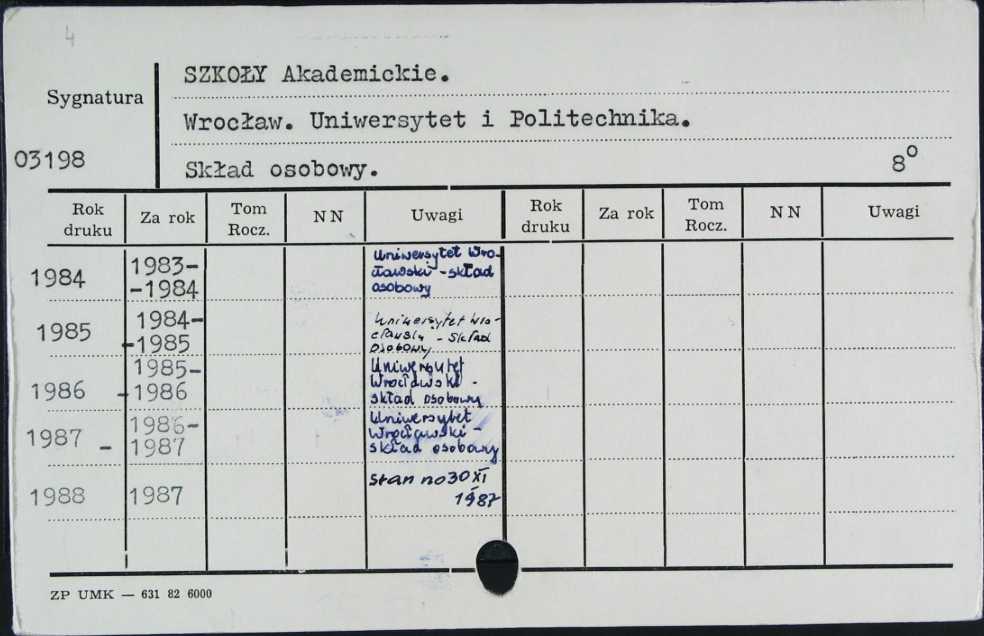 4
SZKOŁY Akademickie.
Sygnatura
Wrocław. Uniwersytet i Politechnika.
03198
Skład osobowy.
8º
Rok druku
Za rok
Tom Rocz.
NN
Uwagi
Rok druku
Za rok
Tom Rocz.
NN
Uwagi
1984
1983-
-1984
Uniwersytet Wro-
cławski - skład
osobowy
1985
1984-
-1985
Uniwersytet Wro-
cławski - skład
osobowy
1986
1985-
-1986
Uniwersytet
Wrocławski -
skład osobowy
1987 -
1986-
1987
Uniwersytet
Wrocławski -
skład osobowy
1988
1987
stan na 30 XI
1987
ZP UMK — 631 82 6000